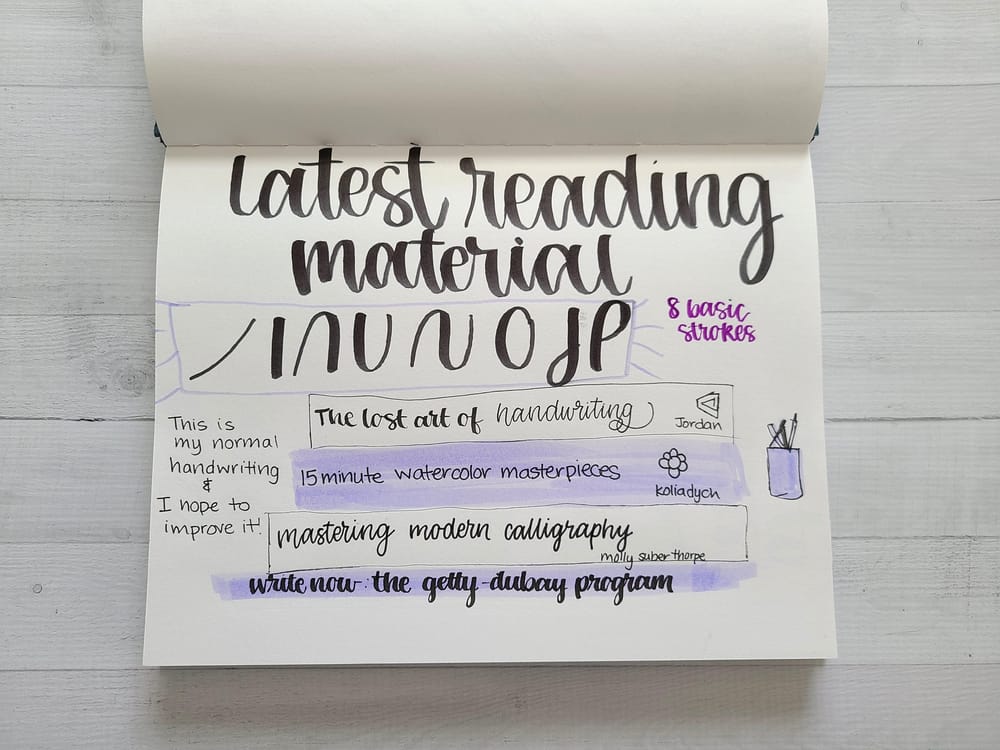 latest reading
material
8 basic
strokes
The lost art of handwriting
Jordan
15 minute watercolor masterpieces
koliadych
mastering modern calligraphy
molly suber thorpe
write now: the getty-dubay program
This is
my normal
handwriting
&
I hope to
improve it!